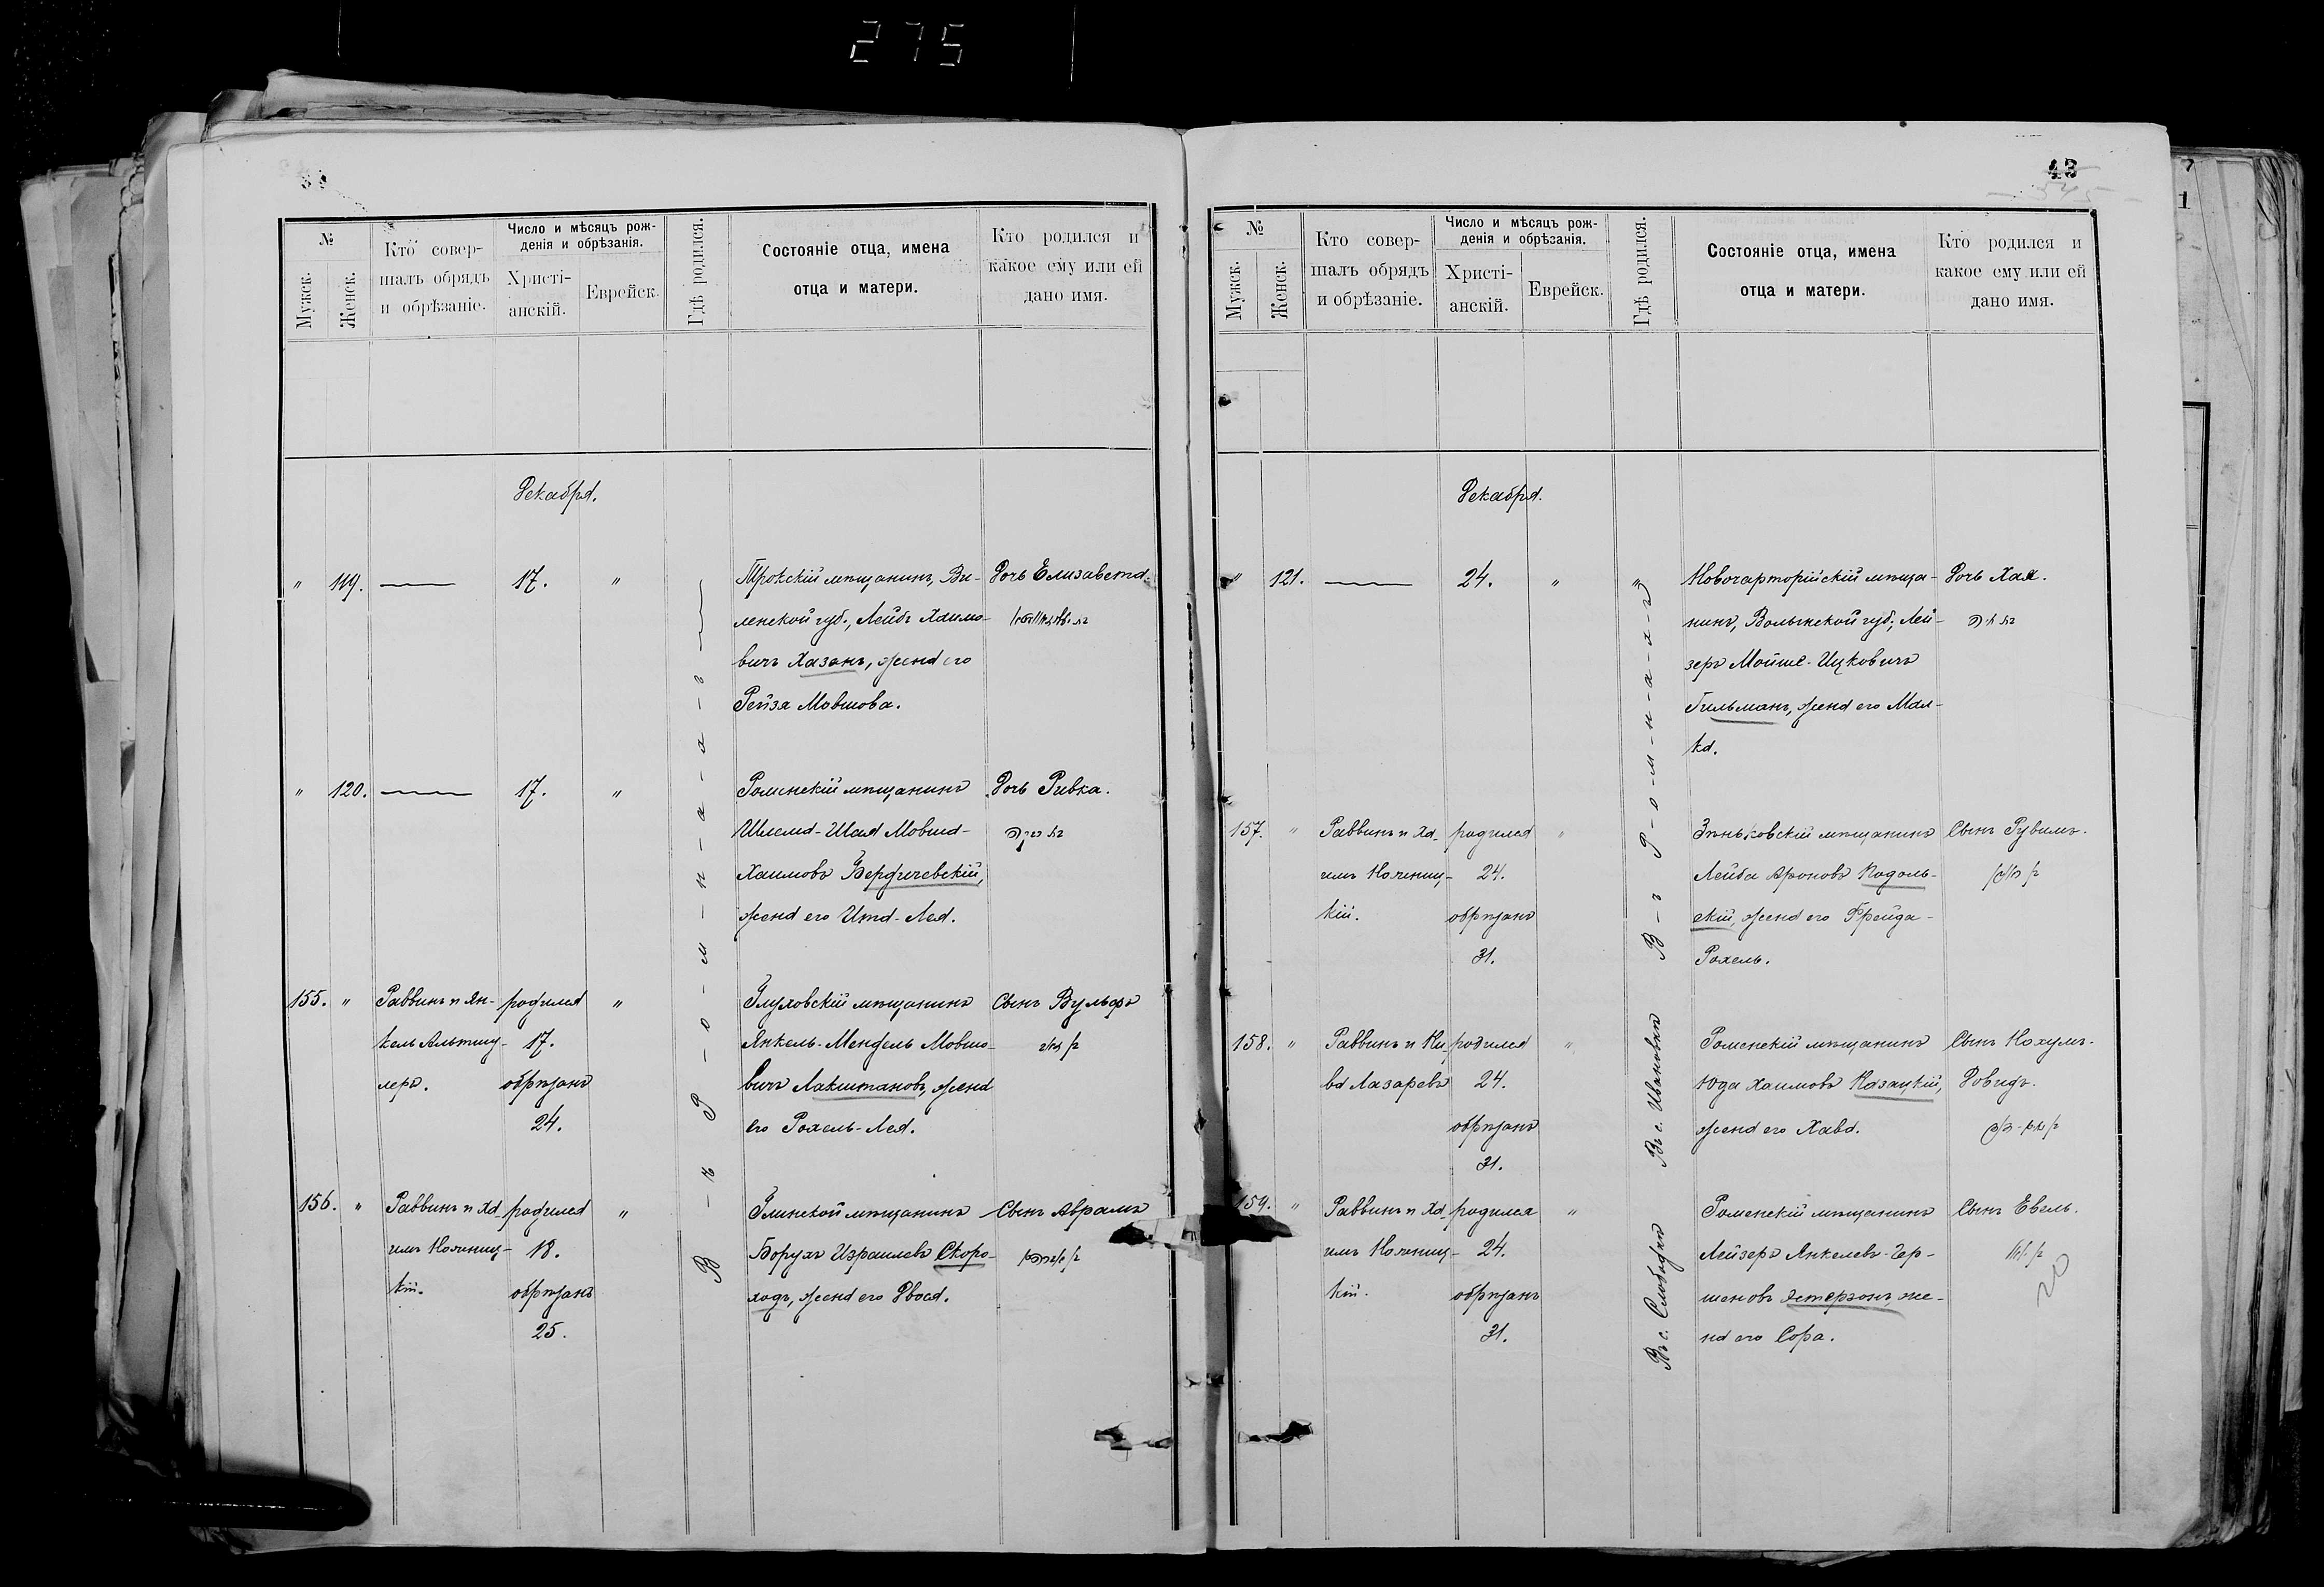 275
№
Мужск.
Женск.
Кто совер-
шалъ обрядъ
и обрѣзаніе.
Число и мѣсяцъ рож-
денія и обрѣзанія.
Христі-
анскій.
Еврейск.
Гдѣ родился.
Состояніе отца, имена
отца и матери.
Кто родился и
какое ему или ей
дано имя.
Декабря.
" 119. — 17. "
Трокскій мѣщанинъ, Ви-
ленской губ., Лейбъ Хаимо-
вичъ Хазанъ, жена его
Рейза Мовшова.
Дочь Елизавета.
" 120. — 17. "
Роменскій мѣщанинъ
Шлема-Шая Мовша-
Хаимовъ Бердичевскій,
жена его Ита-Лея.
Дочь Ривка.
155. "
Раввинъ и Ян-
кель Альтшу-
леръ.
родился
17.
обрѣзанъ
24.
"
Глуховскій мѣщанинъ
Янкель-Мендель Мовшо-
вичъ Лакштановъ, жена
его Рохель-Лея.
Сынъ Вульфъ
156. "
Раввинъ и Ха-
имъ
кій.
родился
18.
обрѣзанъ
25.
"
Глинской мѣщанинъ
Борухъ Израилевъ Скоро-
ходъ, жена его Двося.
Сынъ Абрамъ
В-ъ Р-о-м-н-а-х-ъ
43
№
Мужск.
Женск.
Кто совер-
шалъ обрядъ
и обрѣзаніе.
Число и мѣсяцъ рож-
денія и обрѣзанія.
Христі-
анскій.
Еврейск.
Гдѣ родился.
Состояніе отца, имена
отца и матери.
Кто родился и
какое ему или ей
дано имя.
Декабря.
" 121. — 24. " "
Новочарторійскій мѣща-
нинъ, Волынской губ., Лей-
зеръ Мойше-Ицковичъ
Гильманъ, жена его Мал-
ка.
Дочь Хая.
157. "
Раввинъ и Ха-
имъ
кій.
родился
24.
обрѣзанъ
31.
"
Зѣньковскій мѣщанинъ
Лейба Ароновъ Подоль-
скій, жена его Фрейда-
Рохель.
Сынъ Рувимъ.
158. "
Раввинъ и Ки-
ва Лазаревъ
родился
24.
обрѣзанъ
31.
"
Роменскій мѣщанинъ
Юда Хаимовъ Казацкій,
жена его Хава.
Сынъ Нохумъ-
Довидъ.
159. "
Раввинъ и Ха-
имъ
кій.
родился
24.
обрѣзанъ
31.
"
Роменскій мѣщанинъ
Лейзеръ Янкелевъ-Гер-
шеновъ Эстерзонъ, же-
на его Сора.
Сынъ Евель.
20
В-ъ Р-о-м-н-а-х-ъ
Въ с. Ивановкѣ
Въ с. Слободкѣ